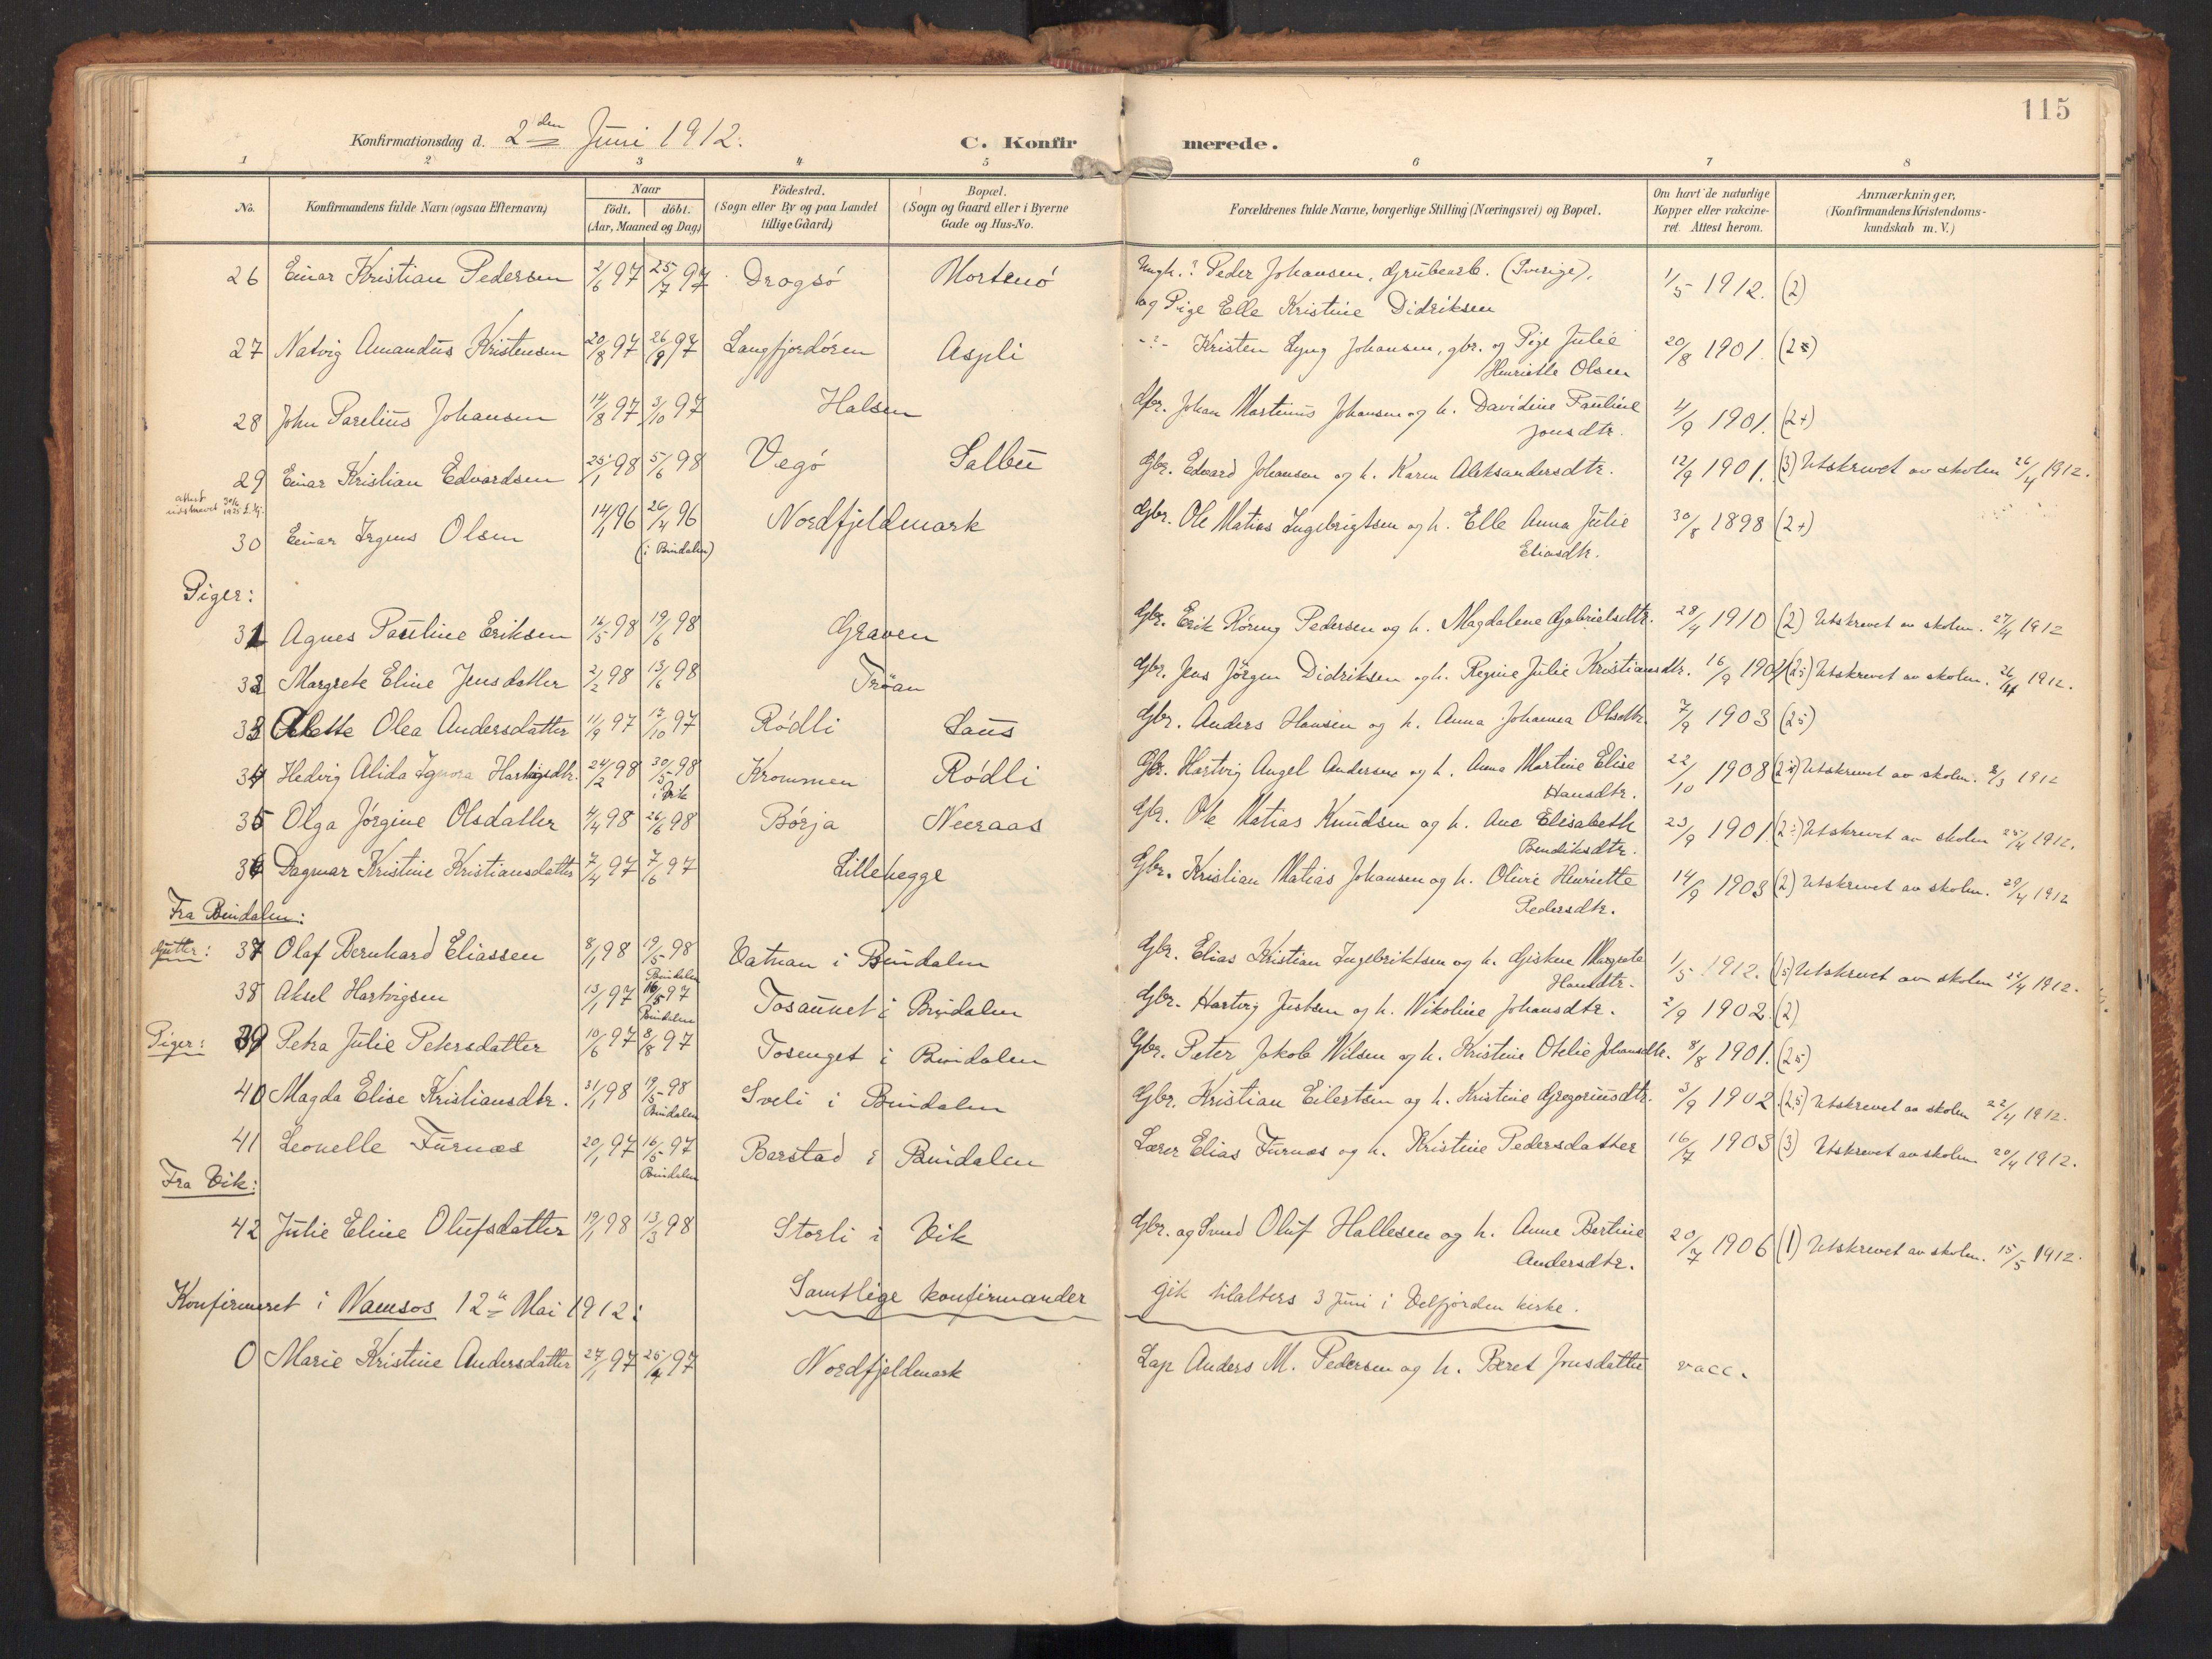 115
Konfirmationsdag d. 2den Juni 1912. C. Konfirmerede.
1 2 3 4 5 6 7 8
No. Konfirmandens fulde Navn (ogsaa Efternavn) Naar födt. döbt. (Aar, Maaned og Dag) Födested. (Sogn eller By og paa Landet tillige Gaard) Bopæl. (Sogn og Gaard eller i Byerne Gade og Hus-No. Forældrenes fulde Navne, borgerlige Stilling (Næringsvei) og Bopæl. Om havt de naturlige Kopper eller vakcineret. Attest herom. Anmærkninger, (Konfirmandens Kristendomskundskab m. V.)
26 Einar Kristian Pedersen 2/6 97 25/7 97 Drogsö Mortenö Ungk.: Peder Johansen, Grubearb. (Sverige), 1/5 1912. (2)
og Pige Elle Kristine Didriksen
27 Natvig Amandus Kristensen 20/8 97 26/9 97 Langfjordören Aspli -:- Kristen Lyng Johansen, gbr. og Pige Julie 20/8 1901. (2)
Henriette Olsen
28 John Parelius Johansen 14/8 97 3/10 97 Halsen Gbr. Johan Martinus Johansen og h. Davidine Pauline 4/9 1901. (2+)
Jonsdtr.
29 Einar Kristian Edvardsen 25/1 98 5/6 98 Vegö Salbu Gbr. Edvard Johansen og h. Karen Aleksandersdtr. 12/9 1901. (3) Utskrevet av skolen 26/4 1912.
attest
30 Einar Irgens Olsen 14/1 96 26/4 96 Nordfjeldmark Gbr. Ole Matias Ingebrigtsen og h. Elle Anna Julie 30/8 1898 (2+)
(i Bindalen) Eliasdtr.
Piger:
31 Agnes Pauline Eriksen 16/5 98 19/6 98 Graven Gbr. Erik Röring Pedersen og h. Magdalene Gabrielsdtr. 28/4 1910 (2) Utskrevet av skolen. 27/4 1912
32 Margrete Eline Jensdatter 2/2 98 13/6 98 Tröan Gbr. Jens Jörgen Didriksen og h. Regine Julie Kristiansdtr. 16/9 1901 (2:) Utskrevet av skolen. 26/4 1912.
33 Olea Andersdatter 11/9 97 17/10 97 Rödli Saus Gbr. Anders Hansen og h. Anna Johanna Olsdtr. 7/9 1903 (25)
34 Hedvig Alida Ignora Hartvigsdtr. 24/2 98 30/5 98 Krommen Rödli Gbr. Hartvig Angel Andersen og h. Anna Martine Elise 22/10 1908 Utskrevet av skolen. 2/3 1912
i Vik Hansdtr.
35 Olga Jörgine Olsdatter 4/4 98 26/6 98 Börja Neeraas Gbr. Ole Matias Knudsen og h. Ane Elisabeth 23/9 1901. (2:) Utskrevet av skolen 25/4 1912.
Bendiksdtr.
36 Dagmar Kristine Kristiansdatter 7/4 97 7/6 97 Lillehegge Gbr. Kristian Matias Johansen og h. Olivie Henriette 14/9 1903 (2) Utskrevet av skolen. 29/4 1912
Pedersdtr.
Fra Bindalen:
Gutter: 37 Olaf Bernhard Eliassen 8/1 98 19/5 98 Vatnan i Bindalen Gbr. Elias Kristian Ingebriktsen og h. Gisken Margrete 1/5 1912. Utskrevet av skolen 22/4 1912.
Bindalen Hansdtr.
38 Aksel Hartvigsen 13/1 97 16/5 97 Tosaunet i Bindalen Gbr. Hartvig Justsen og h. Nikoline Johansdtr. 2/9 1902. (2)
Bindalen
Piger: 39 Petra Julie Petersdatter 10/6 97 8/8 97 Tosenget i Bindalen Gbr. Peter Jakob Nilsen og h. Kristine Otelie Johansdtr. 8/8 1901. (25)
40 Magda Elise Kristiansdtr. 31/1 98 19/5 98 Sveli i Bindalen Gbr. Kristian Eilertsen og h. Kristine Gregoriusdtr. 3/9 1902. (2,5) Utskrevet av skolen 22/4 1912.
Bindalen
41 Leonelle Furnæs 20/1 97 16/5 97 Barstad i Bindalen Lærer Elias Furnæs og h. Kristine Pedersdatter 16/7 1903 (3) Utskrevet av skolen 20/4 1912.
Bindalen
Fra Vik:
42 Julie Eline Olufsdatter 19/1 98 13/3 98 Storli i Vik Gbr. og Smed Oluf Hallesen og h. Anne Bertine 20/7 1906 (1) Utskrevet av skolen. 15/5 1912.
Andersdtr.
Samtlige konfirmander gik tilalters 3 Juni i Velfjorden kirke.
Konfirmeret i Namsos 12te Mai 1912:
0 Marie Kristine Andersdatter 27/1 97 25/4 97 Nordfjeldmark Lap Anders M. Pedersen og h. Beret Jonsdatter vacc.